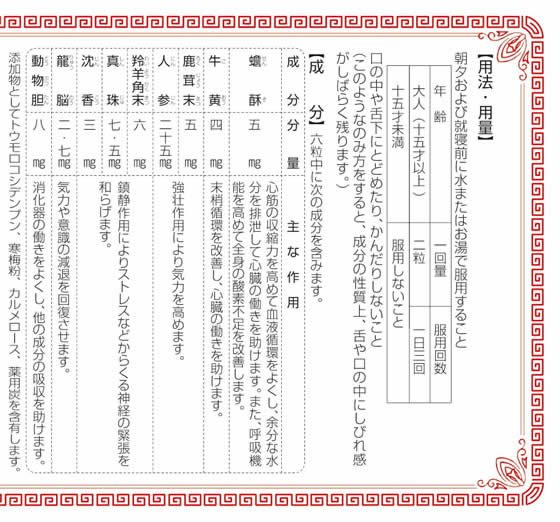 【用法・用量】
朝夕および就寝前に水またはお湯で服用すること
年齢 一回量 服用回数
大人（十五才以上） 二粒 一日三回
十五才未満 服用しないこと
口の中や舌下にとどめたり、かんだりしないこと
（このようなのみ方をすると、成分の性質上、舌や口の中にしびれ感
がしばらく残ります。）
【成 分】六粒中に次の成分を含みます。
成分 分量 主な作用
蟾酥 五mg 心筋の収縮力を高めて血液循環をよくし、余分な水
分を排泄して心臓の働きを助けます。また、呼吸機
能を高めて全身の酸素不足を改善します。
牛黄 四mg 末梢循環を改善し、心臓の働きを助けます。
鹿茸末 五mg 強壮作用により気力を高めます。
人参 二十五mg
羚羊角末 六mg 鎮静作用によりストレスなどからくる神経の緊張を
和らげます。
真珠 七・五mg
沈香 三mg
龍脳 二・七mg 気力や意識の減退を回復させます。
動物胆 八mg 消化器の働きをよくし、他の成分の吸収を助けます。
添加物としてトウモロコシデンプン、寒梅粉、カルメロース、薬用炭を含有します。